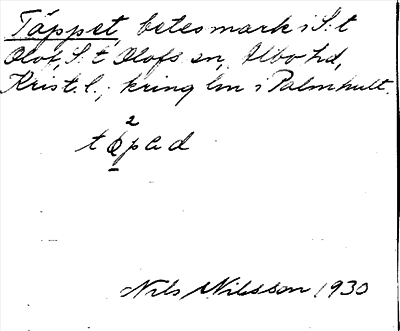 Täppet, betesmark i S:t
Olof, S:t Olofs sn, Albo hd,
Krist. l.; kring lm i Palmhult.
2
täpad
Nils Nilsson 1930